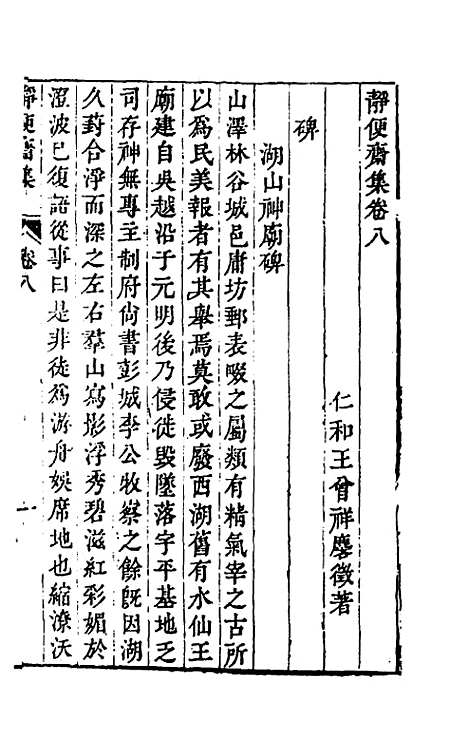 靜便齋集卷八
仁和王曾祥麐徵著
碑
湖山神廟碑
山澤林谷城邑庸坊郵表畷之屬類有精氣宰之古所
以為民美報者有其舉焉莫敢或廢西湖舊有水仙王
廟建自吳越沿于元明後乃侵徙毀墜落字平基地乏
司存神無專主制府尚書彭城李公牧察之餘旣因湖
久葑合淨而深之左右羣山寫影浮秀碧滋紅彩媚於
澄波已復語從事曰是非徒為游舟娛席地也縮潦沃
靜便齋集
卷八
一